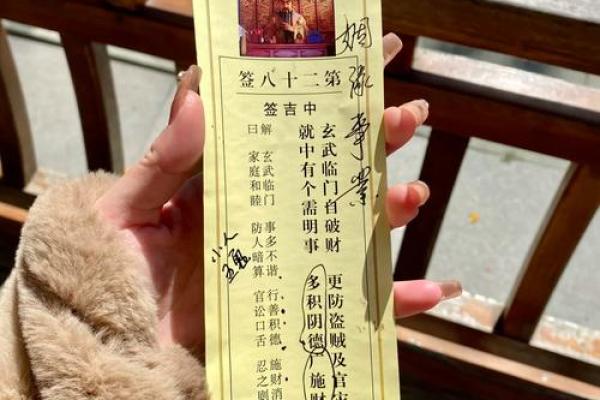 姻缘事業
第二十八签
中吉签
玄武临门自破财 更防盗贼及官灾
就中有个需明事 多积阴德广施财
解 玄武临门 事多不谐 行善积德 施财消
曰 家庭和睦 防人暗算 官讼口舌 忍之则
小人